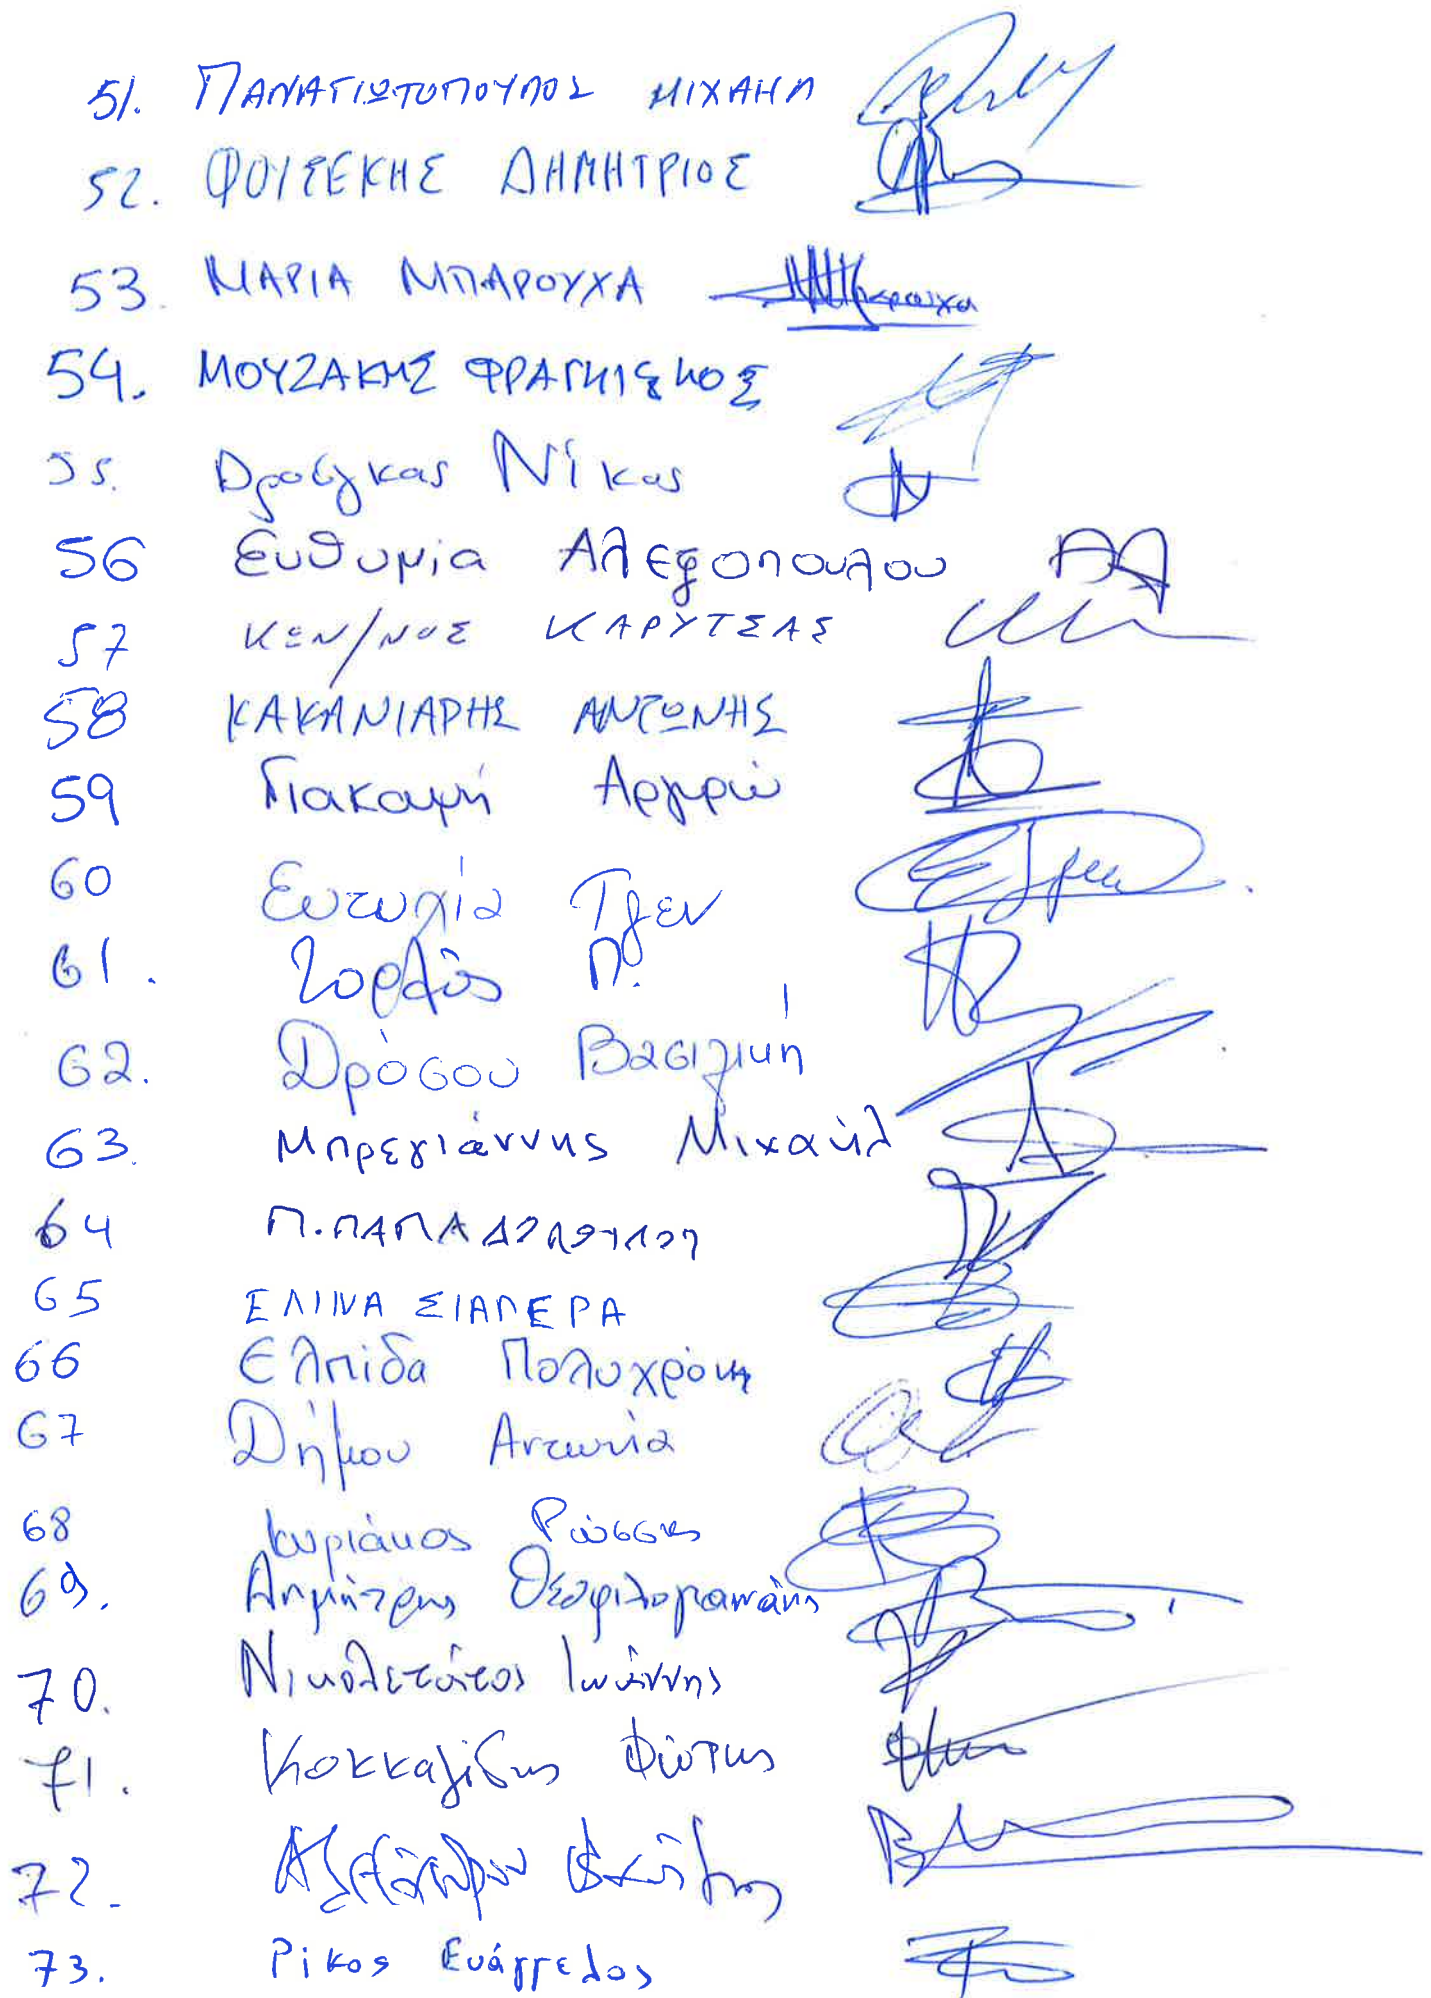 51. ΠΑΝΑΓΙΩΤΟΠΟΥΛΟΣ ΜΙΧΑΗΛ
52. ΦΟΥΣΕΚΗΣ ΔΗΜΗΤΡΙΟΣ
53. ΜΑΡΙΑ ΜΠΑΡΟΥΧΑ
54. ΜΟΥΖΑΚΗΣ ΦΡΑΓΚΙΣΚΟΣ
55. Δρούγκας Νίκος
56 Ευθυμία Αλεξοπούλου
57 ΚΩΝ/ΝΟΣ ΚΑΡΥΤΣΑΣ
58 ΚΑΚΑΝΙΑΡΗΣ ΑΝΤΩΝΗΣ
59 Γιακουμή Αργυρώ
60 Ευτυχία Τζεν
61. Π.
62. Δρόσου Βασιλική
63. Μπρεγιάννης Μιχαήλ
64 Π. ΠΑΠΑΔΟΠΟΥΛΟΥ
65 ΕΛΙΝΑ ΣΙΑΠΕΡΑ
66 Ελπίδα Πολυχρόνη
67 Δήμου Αντωνία
68 Κυριάκος Ρώσσης
69. Δημήτρης Θεοφιλογιαννάκης
70. Νικολετάτος Ιωάννης
71. Κοκκαλίδης Φώτης
72.
73. Ρίκος Ευάγγελος